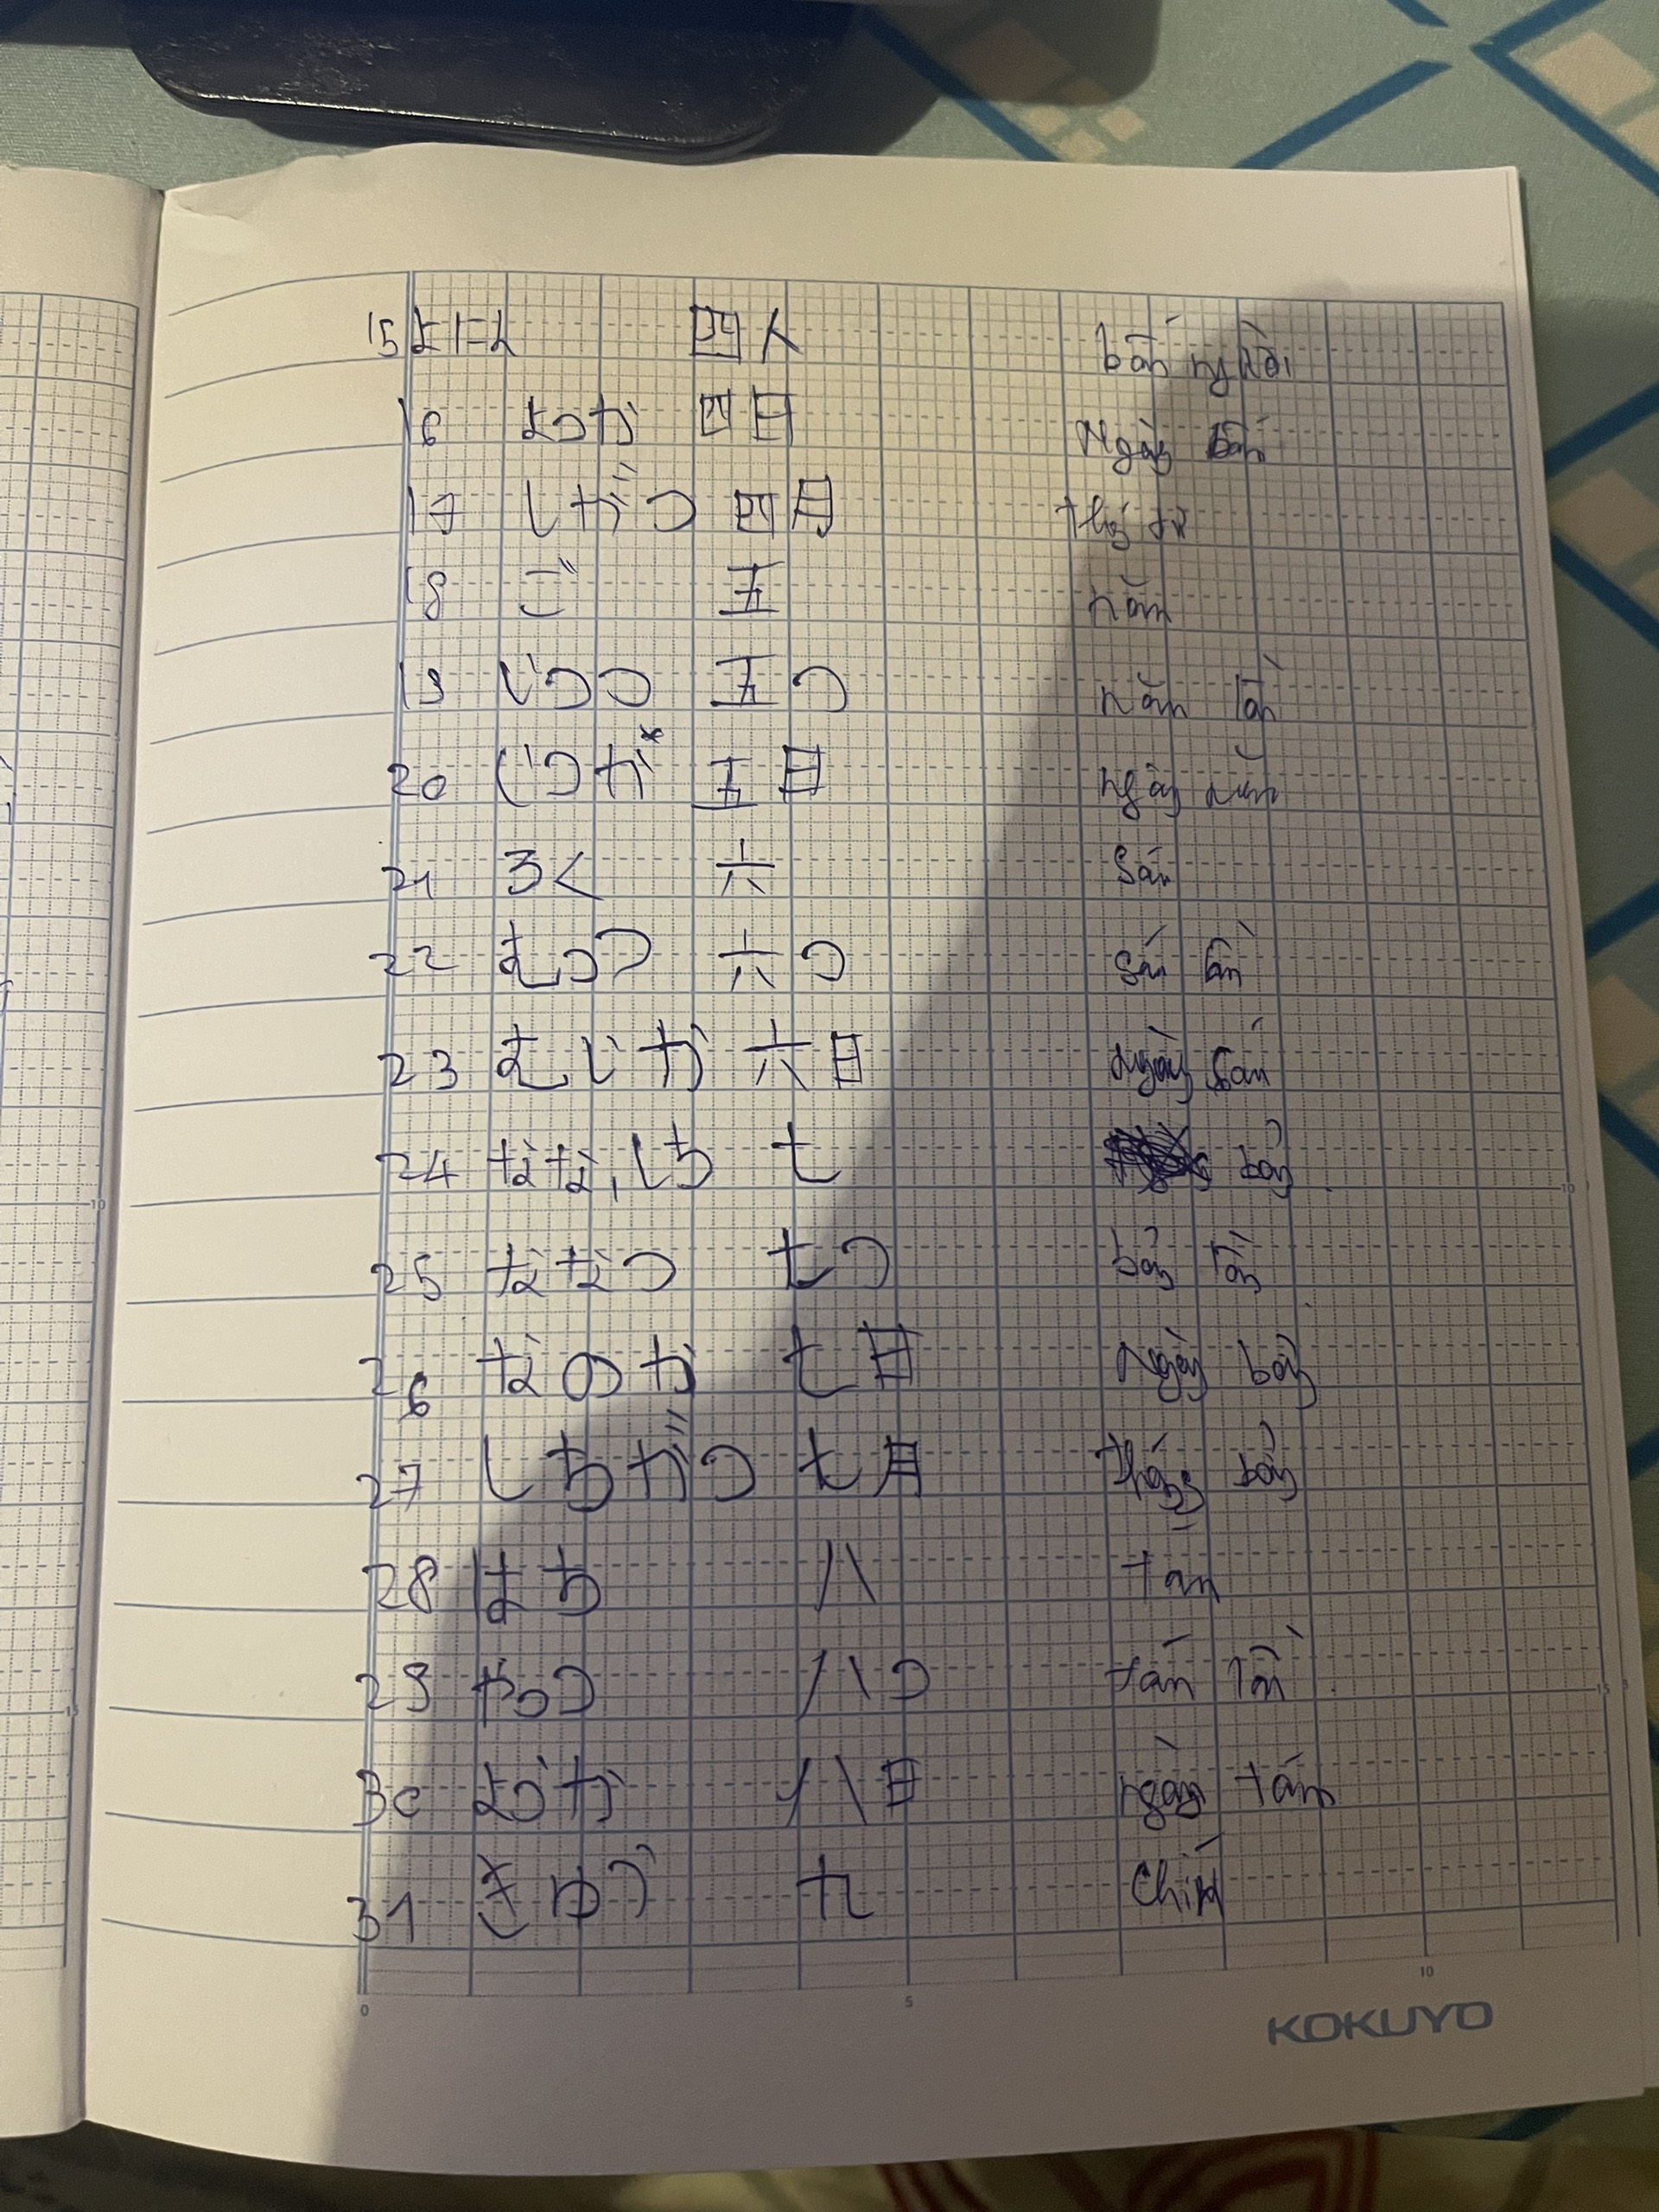 15 よにん 四人 bốn người
16 よっか 四日 Ngày bốn
17 しがつ 四月 tháng tư
18 ご 五 năm
19 いつつ 五つ năm lần
20 いつか* 五日 ngày năm
21 ろく 六 Sáu
22 むっつ 六つ sáu lần
23 むいか 六日 Ngày sáu
24 なな,しち 七 bảy
25 ななつ 七つ bảy lần
26 なのか 七日 Ngày bảy
27 しちがつ 七月 tháng bảy
28 はち 八 tám
29 やっつ 八つ tám lần
30 ようか 八日 ngày tám
31 きゅう 九 Chín
0 5 10
KOKUYO